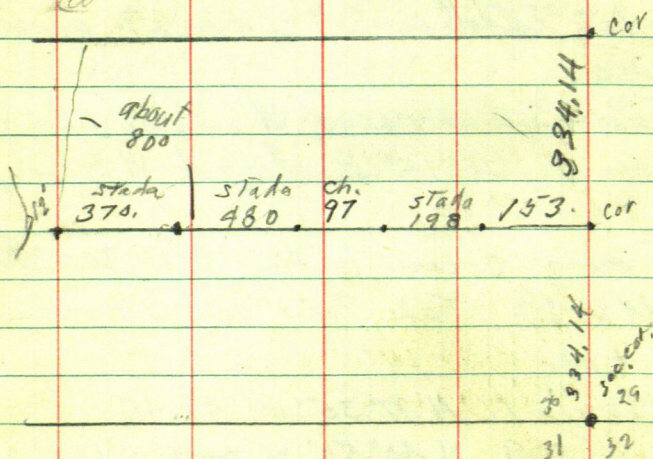 cor
934.14
about
800
stada
370.
stada
480
ch.
97
stada
198
153.
cor
12'
934.14
sec. cor.
30
29
31
32